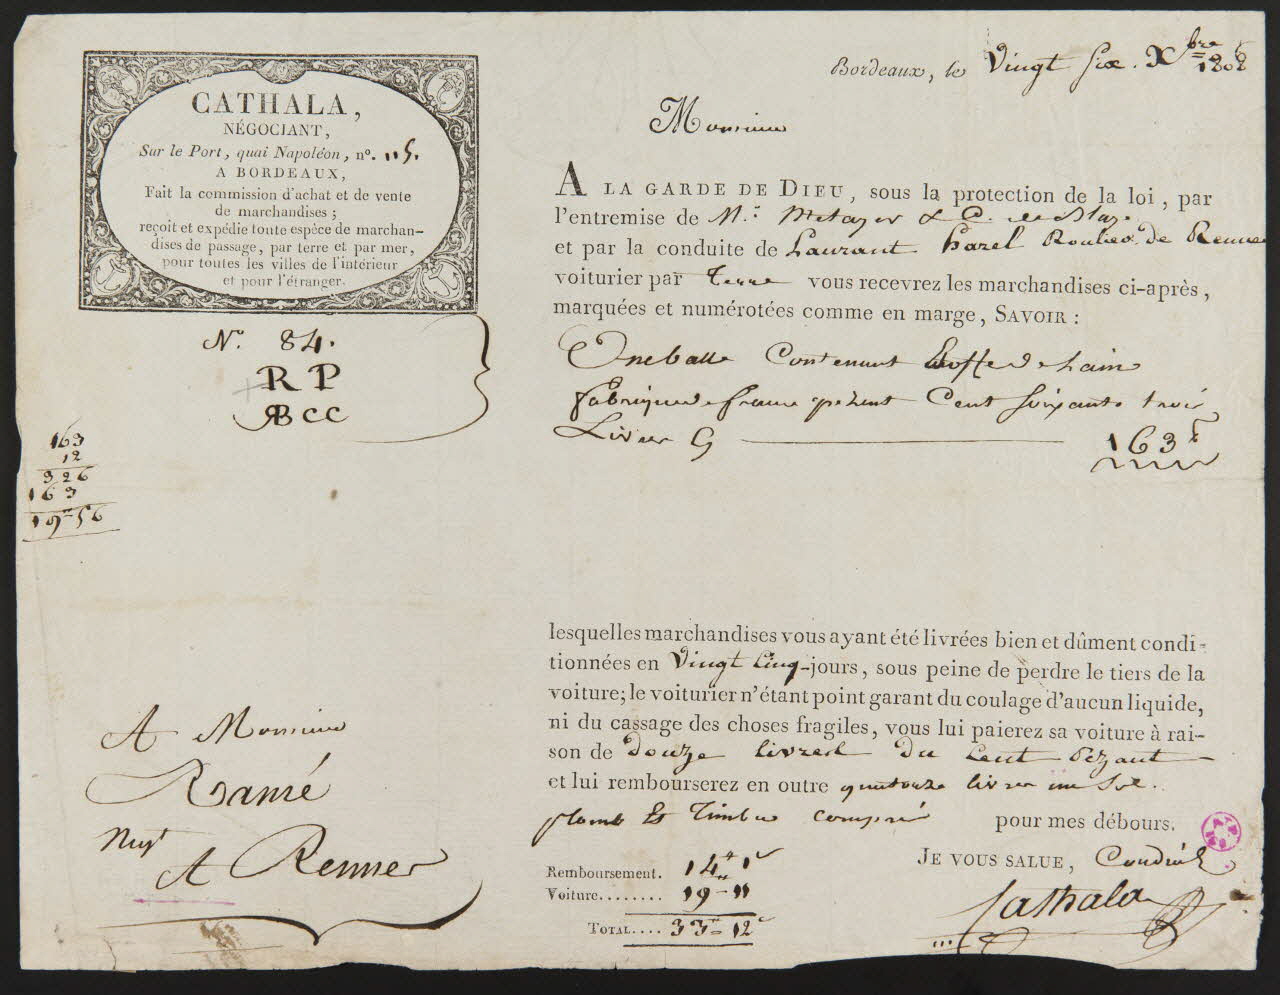 CATHALA,
NÉGOCIANT,
Sur le Port, quai Napoléon, n°. 115.
A BORDEAUX,
Fait la commission d'achat et de vente
de marchandises ;
reçoit et expédie toute espèce de marchan-
dises de passage, par terre et par mer,
pour toutes les villes de l'intérieur
et pour l'étranger.
N.° 84.
R P
RB CC
163
12
326
163
19 56
Bordeaux, le Vingt Six Xbre
Monsieur
A LA GARDE DE DIEU, sous la protection de la loi, par
l'entremise de Mr. Metayer & C. de Blaye
et par la conduite de Laurant hazel Roulier de Rennes
voiturier par Terre vous recevrez les marchandises ci-après,
marquées et numérotées comme en marge, SAVOIR :
Une balle Contenant Etoffe de Laine
fabrique de france pezent Cent Soixante trois
Livres 163
lesquelles marchandises vous ayant été livrées bien et dûment condi-
tionnées en Vingt Cinq jours, sous peine de perdre le tiers de la
voiture; le voiturier n'étant point garant du coulage d'aucun liquide,
ni du cassage des choses fragiles, vous lui paierez sa voiture à rai-
son de douze livres du Cent Pezant
et lui rembourserez en outre quatorze livres un Sol.
plomb Et Timbre compris pour mes débours.
JE VOUS SALUE,
Cathala
Remboursement. 14 1
Voiture........ 19 - 11
TOTAL.... 33 12
A Monsieur
Ramé
Negt
A Rennes